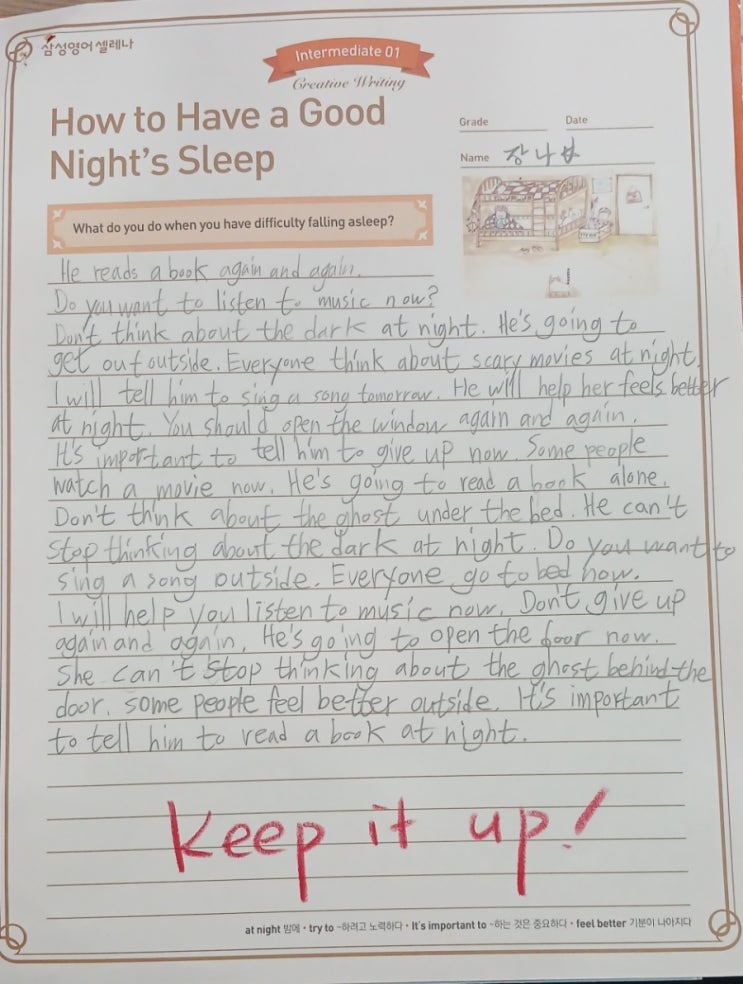 삼성영어 셀레나
Intermediate 01
Creative Writing
How to Have a Good
Night's Sleep
Grade
Date
Name 장나
What do you do when you have difficulty falling asleep?
He reads a book again and again.
Do you want to listen to music now?
Don't think about the dark at night. He's going to
get out outside. Everyone think about scary movies at night.
I will tell him to sing a song tomorrow. He will help her feels better
at night. You should open the window again and again.
It's important to tell him to give up now. Some people
watch a movie now. He's going to read a book alone.
Don't think about the ghost under the bed. He can't
stop thinking about the dark at night. Do you want to
sing a song outside. Everyone go to bed now.
I will help you listen to music now. Don't give up
again and again. He's going to open the door now.
She can't stop thinking about the ghost behind the
door. some people feel better outside. It's important
to tell him to read a book at night.
Keep it up!
at night 밤에 • try to ~하려고 노력하다 • It's important to ~하는 것은 중요하다 • feel better 기분이 나아지다